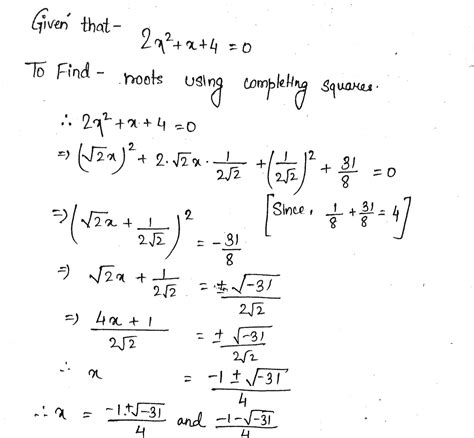 Given that - 2x² + x + 4 = 0
To Find - roots using completing squares.
∴ 2x² + x + 4 = 0
=> (√2x)² + 2·√2x·1/2√2 + (1/2√2)² + 31/8 = 0
=> (√2x + 1/2√2)² = -31/8 [Since, 1/8 + 31/8 = 4]
=> √2x + 1/2√2 = ±√-31/2√2
=> 4x + 1/2√2 = ±√-31/2√2
∴ x = -1 ± √-31/4
∴ x = -1+√-31/4 and -1-√-31/4